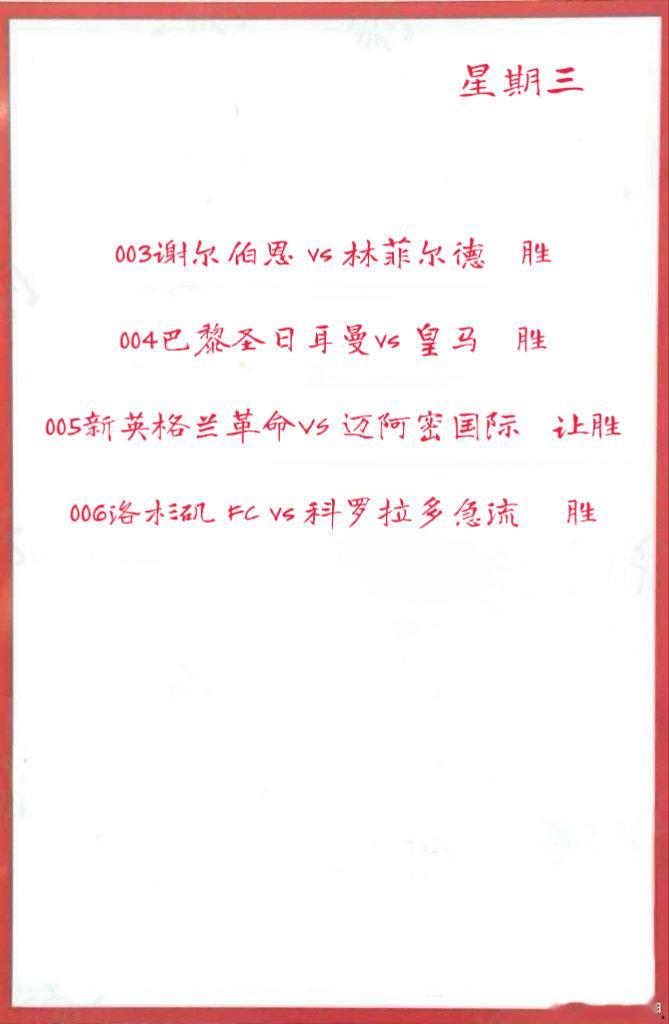 星期三
003谢尔伯恩 vs 林菲尔德 胜
004巴黎圣日耳曼vs 皇马 胜
005新英格兰革命vs 迈阿密国际 让胜
006洛杉矶 FC vs 科罗拉多急流 胜